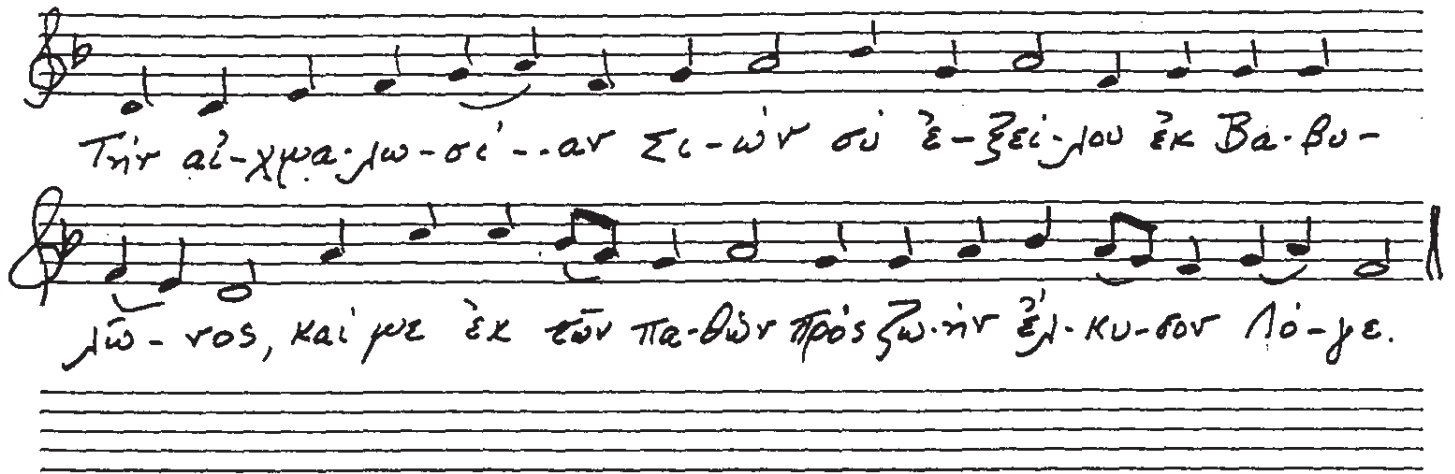 Τὴν αἰ-χμα-λω-σί-..αν Σι-ὼν σὺ ἐ-ξεί-λου ἐκ Βα-βυ-
λῶ-νος, καί με ἐκ τῶν πα-θῶν πρὸς ζω-ὴν ἕλ-κυ-σον Λό-γε.